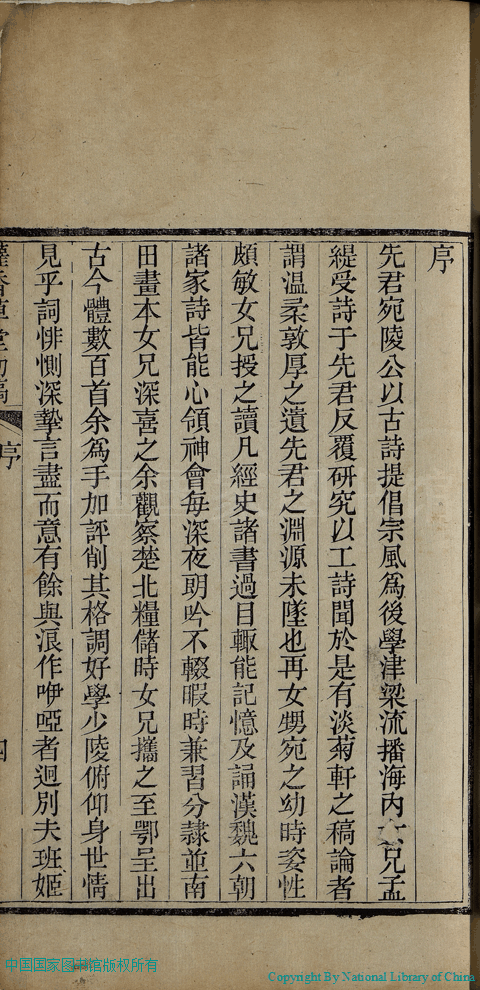 序
先君宛陵公以古詩提倡宗風爲後學津梁流播海内女兄孟
緹受詩于先君反覆研究以工詩聞於是有淡菊軒之稿論者
謂溫柔敦厚之遺先君之淵源未墜也再女甥宛之幼時姿性
頗敏女兄授之讀凡經史諸書過目輙能記憶及誦漢魏六朝
諸家詩皆能心領神會每深夜明吟不輟暇時兼習分隷並南
田畫本女兄深喜之余觀察楚北糧儲時女兄攜之至鄂呈出
古今體數百首余爲手加評削其格調好學少陵俯仰身世情
見乎詞悱惻深摯言盡而意有餘與浪作咿啞者迥別夫班姬
草堂初稿
序
四
中国国家图书馆版权所有
Copyright By National Library of China